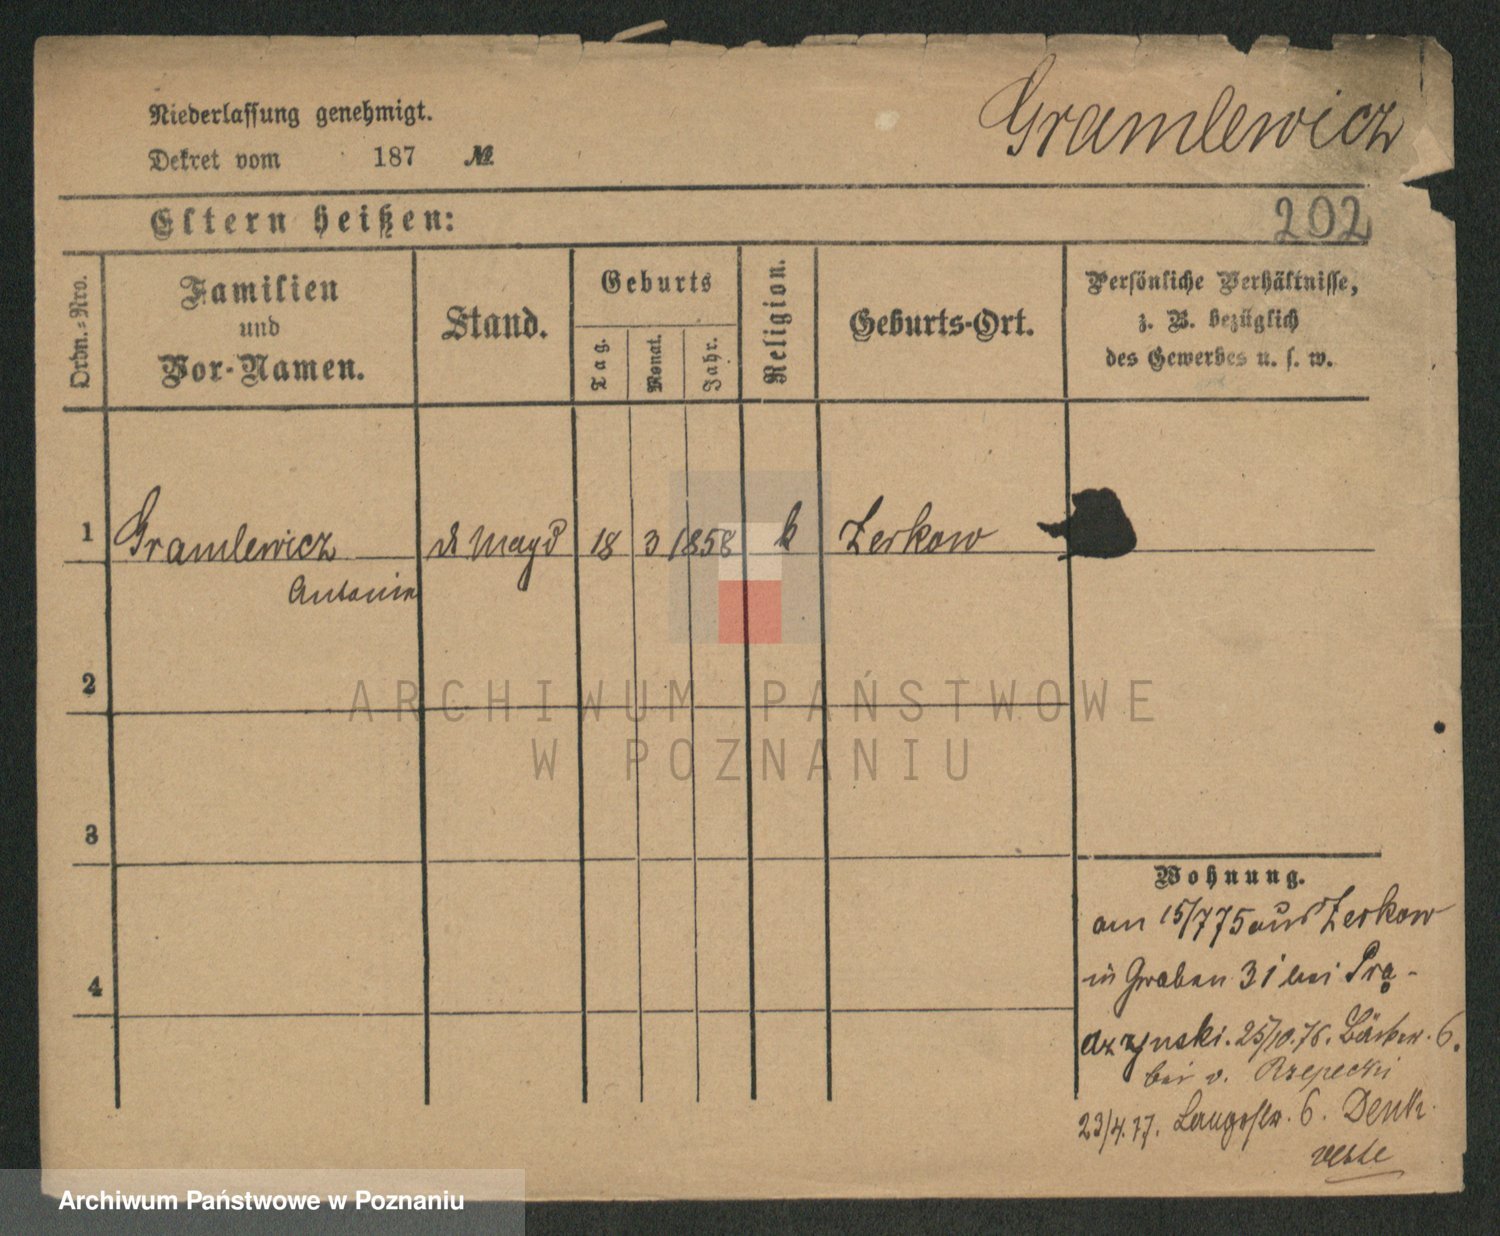 Niederlassung genehmigt.
Gramlewicz
Dekret vom 187 №
Eltern heißen:
202
Ordn.-Nro.
Familien
und
Vor-Namen.
Stand.
Geburts
Tag.
Monat.
Jahr.
Religion.
Geburts-Ort.
Persönliche Verhältnisse,
z. B. bezüglich
des Gewerbes u. s. w.
1 Gramlewicz d Magd 18 3 1858 k Zerkow
Antonie
2
ARCHIWUM PAŃSTWOWE
W POZNANIU
3
Wohnung.
am 15/7 75 aus Zerkow
4
in Graben 31 bei Prą-
dzynski. 25/10.76. Bäcker. 6.
bei v. Rzepecki
23/4.77. Langestr. 6. Denk
Archiwum Państwowe w Poznaniu